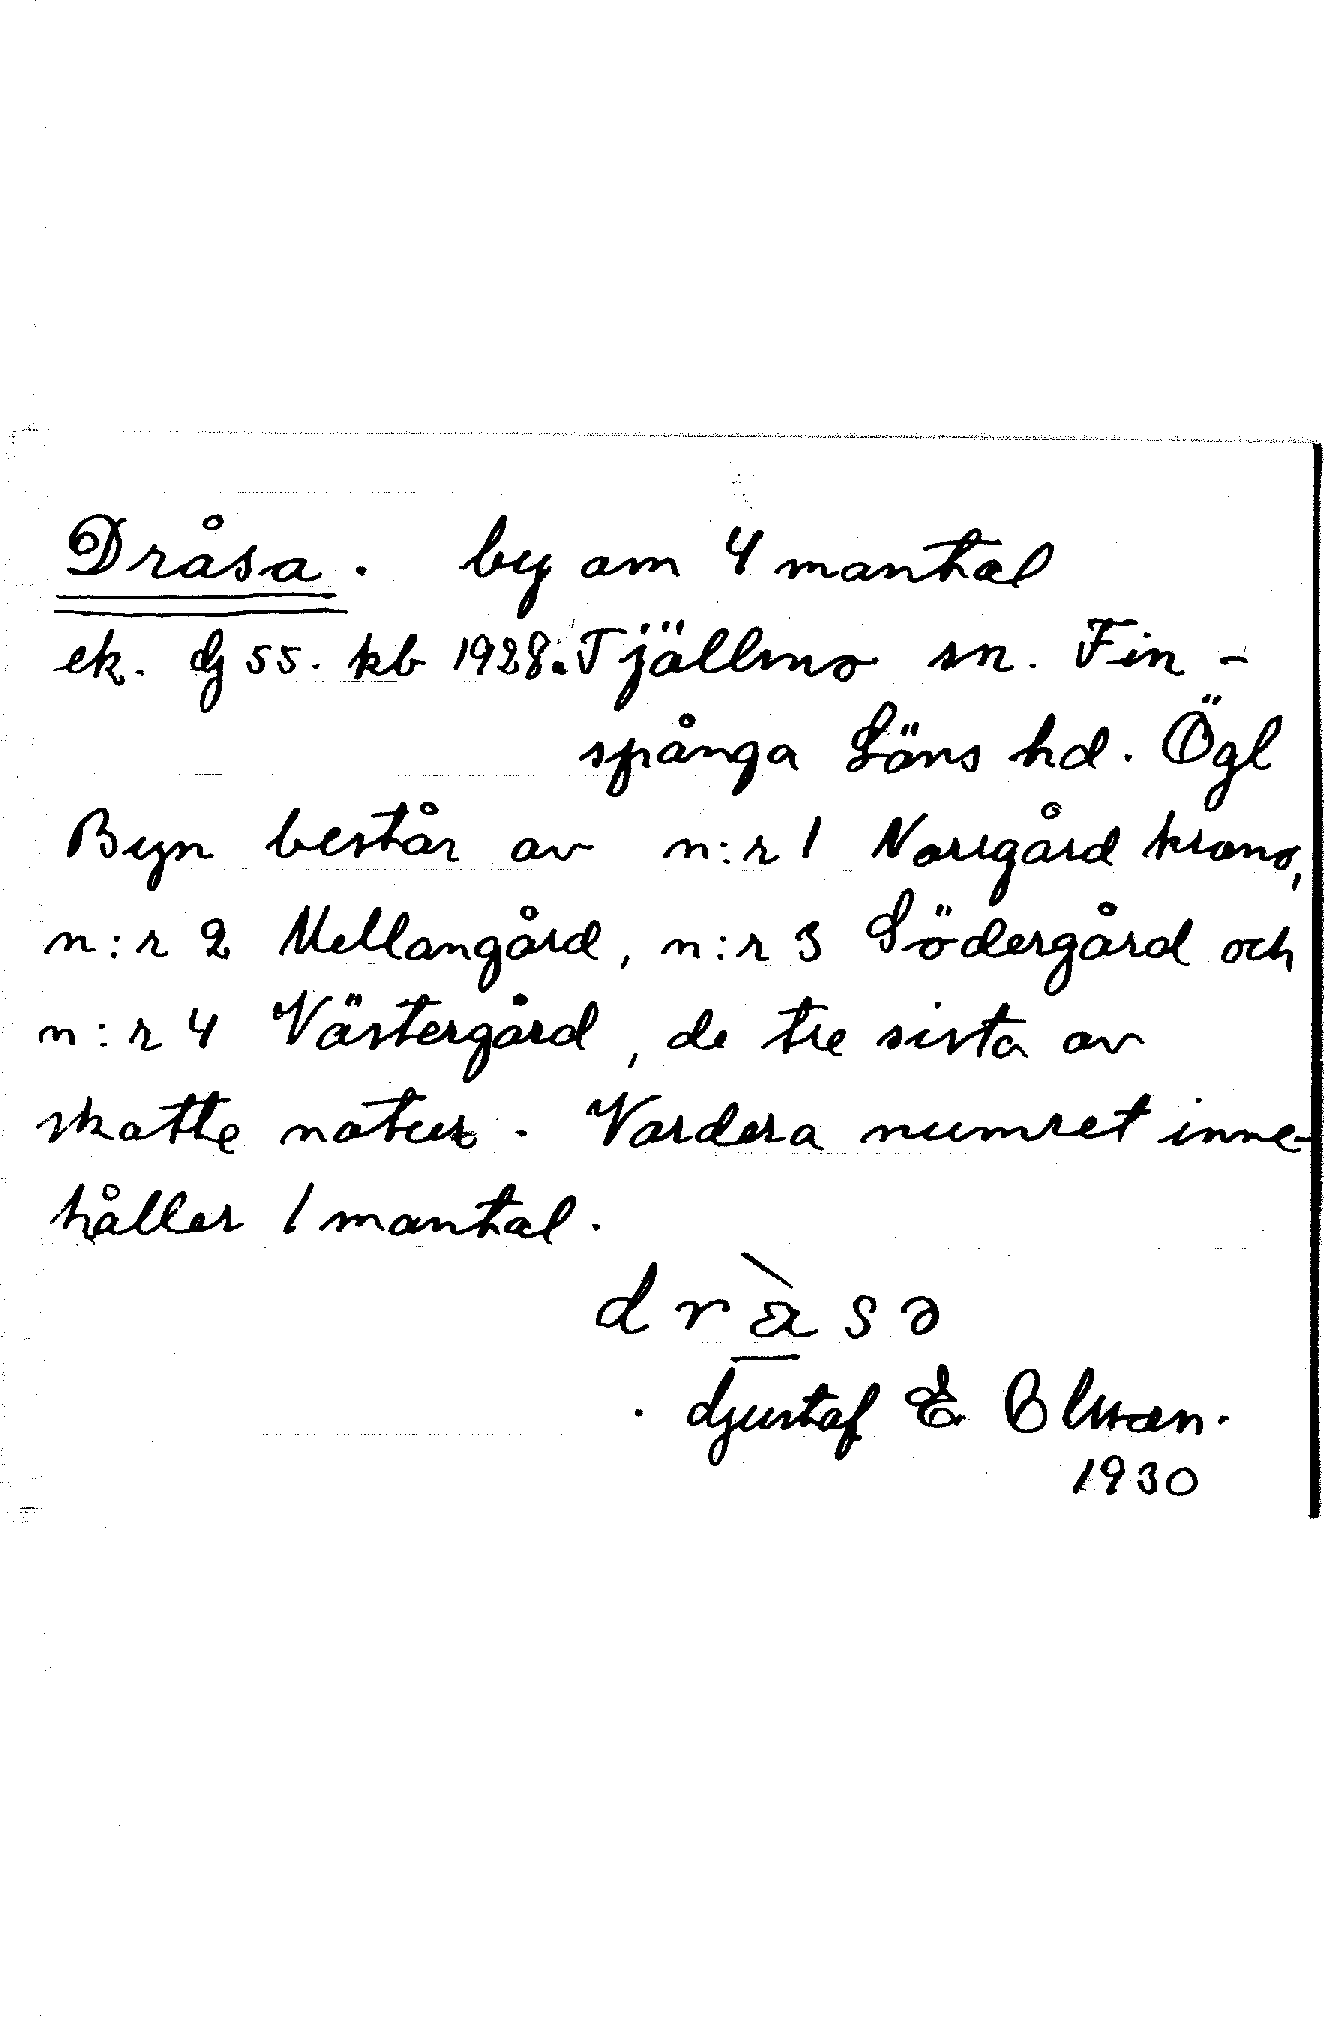 Dråsa. by om 4 mantal
ek. dj 55. kb 1928. Tjällmo sn. Fin-
spånga Läns hd. Ögl
Byn består av n:r 1 Norrgård krono,
n:r 2 Mellangård, n:r 3 Södergård och
n:r 4 Västergård, de tre sista av
skatte natur. Vardera numret inne-
håller 1 mantal.
Gustaf E Olsson.
1930